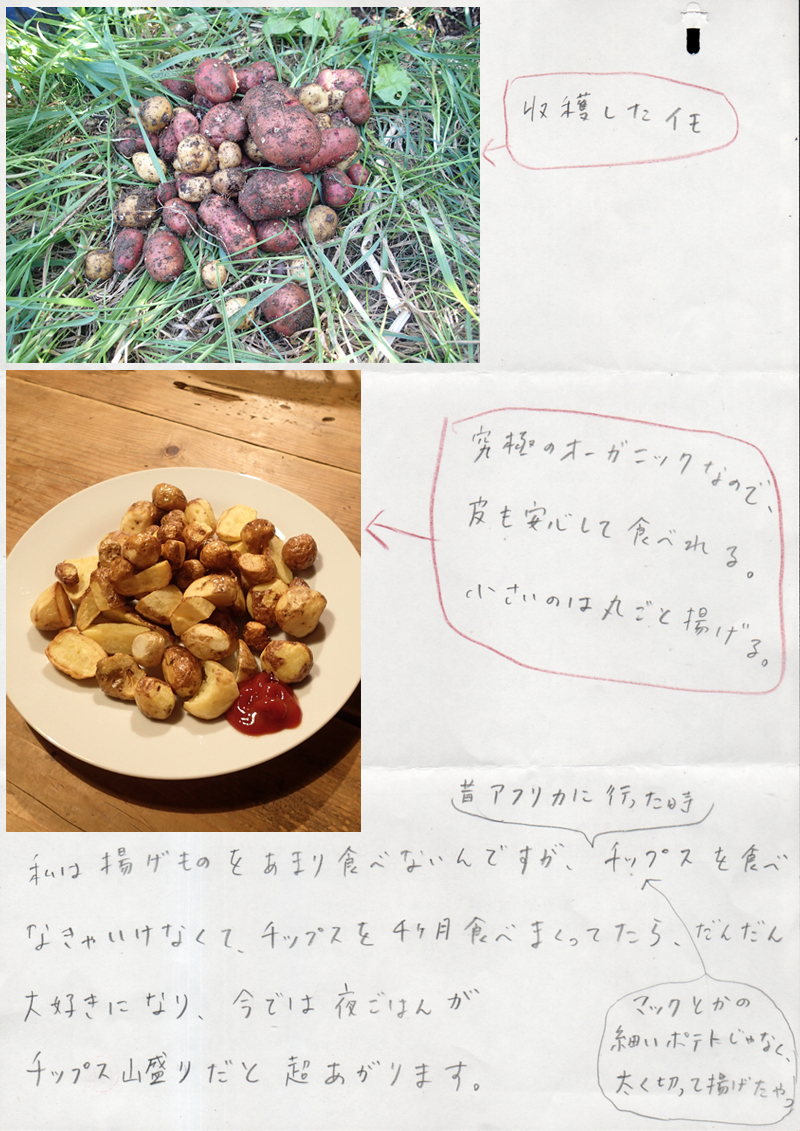 収穫したイモ
究極のオーガニックなので、
皮も安心して食べれる。
小さいのは丸ごと揚げる。
昔アフリカに行った時
私は揚げものをあまり食べないんですが、チップスを食べ
なきゃいけなくて、チップスを4ヶ月食べまくってたら、だんだん
大好きになり、今では夜ごはんが
チップス山盛りだと超あがります。
マックとかの
細いポテトじゃなく、
太く切って揚げたやつ